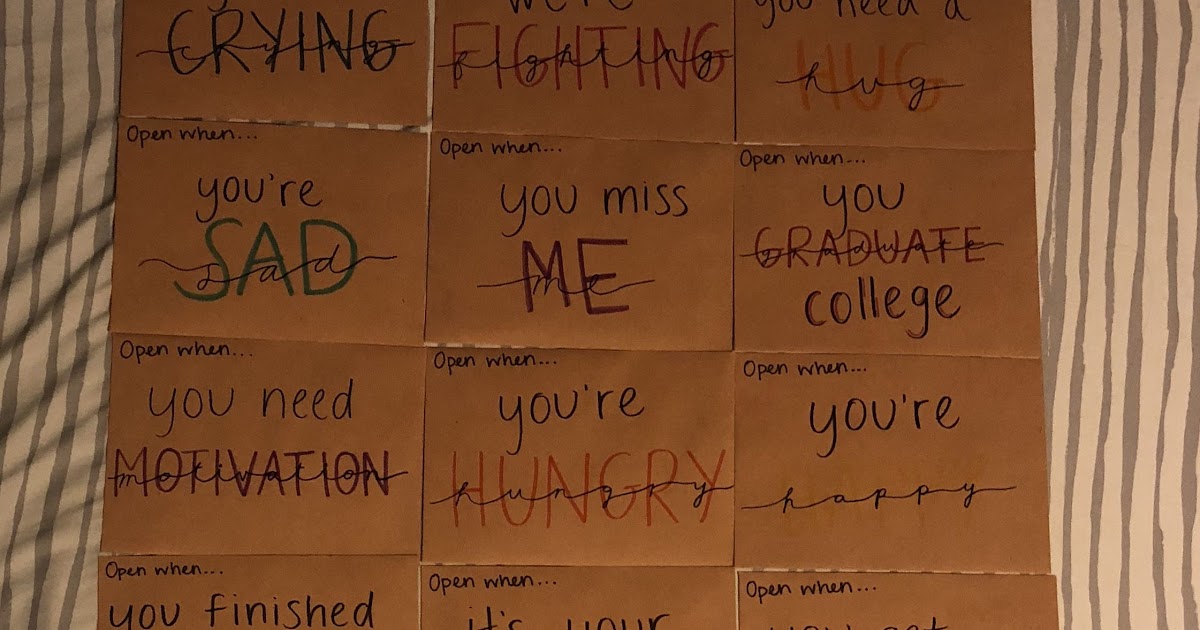 CRYING
crying
we're
FIGHTING
fighting
you need a
HUG
hug
Open when...
you're
SAD
sad
Open when...
you miss
ME
me
Open when...
you
GRADUATE
graduate
college
Open when...
you need
MOTIVATION
motivation
Open when...
you're
HUNGRY
hungry
Open when...
you're
happy
Open when...
you finished
Open when...
it's your
Open when...
you get